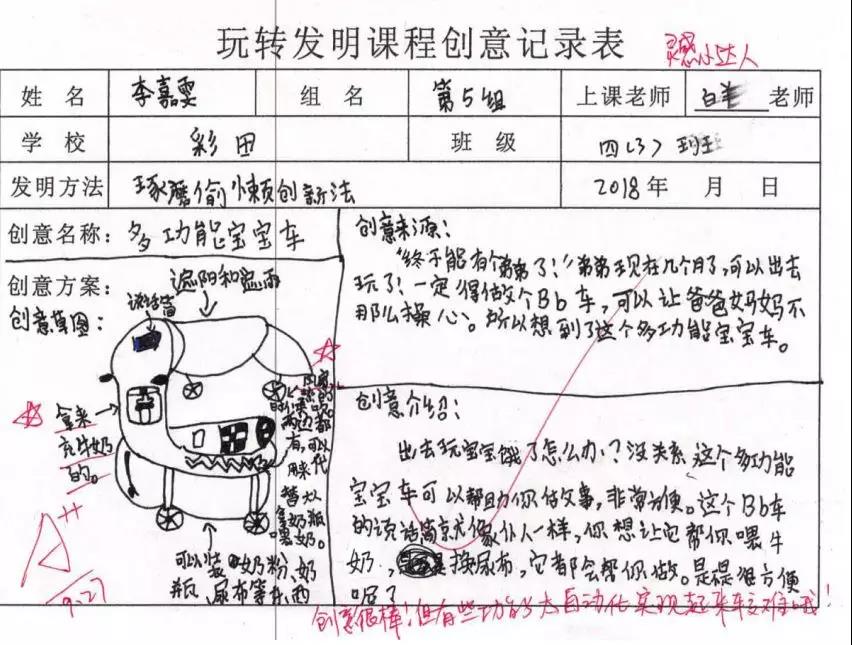 玩转发明课程创意记录表
灵感小达人
姓 名 李嘉雯 组 名 第5组 上课老师 白羊 老师
学 校 彩田 班 级 四(3)班
发明方法 琢磨偷懒创新法 2018年 月 日
创意名称: 多功能宝宝车
创意方案:
创意草图:
遮阳和遮雨
说话筒
拿来
充牛奶
的。
的课
两边都
有,可以
用来代
替大人
拿奶瓶
喂奶。
可以装奶粉、奶
瓶、尿布等东西
A++
9.27
创意来源:
“终于能有个弟弟了!”弟弟现在几个月了,可以出去
玩了!一定得做个Bb车,可以让爸爸妈妈不
那么操心。所以想到了这个多功能宝宝车。
创意介绍:
出去玩宝宝饿了怎么办?没关系,这个多功能
宝宝车可以帮助你做故事,非常方便。这个Bb车
的说话筒就像仆人一样,你想让它帮你喂牛
奶,换尿布,它都会帮你做。是提很方便
呢?
创意很棒!但有些功能太自动化实现起来较难哦!